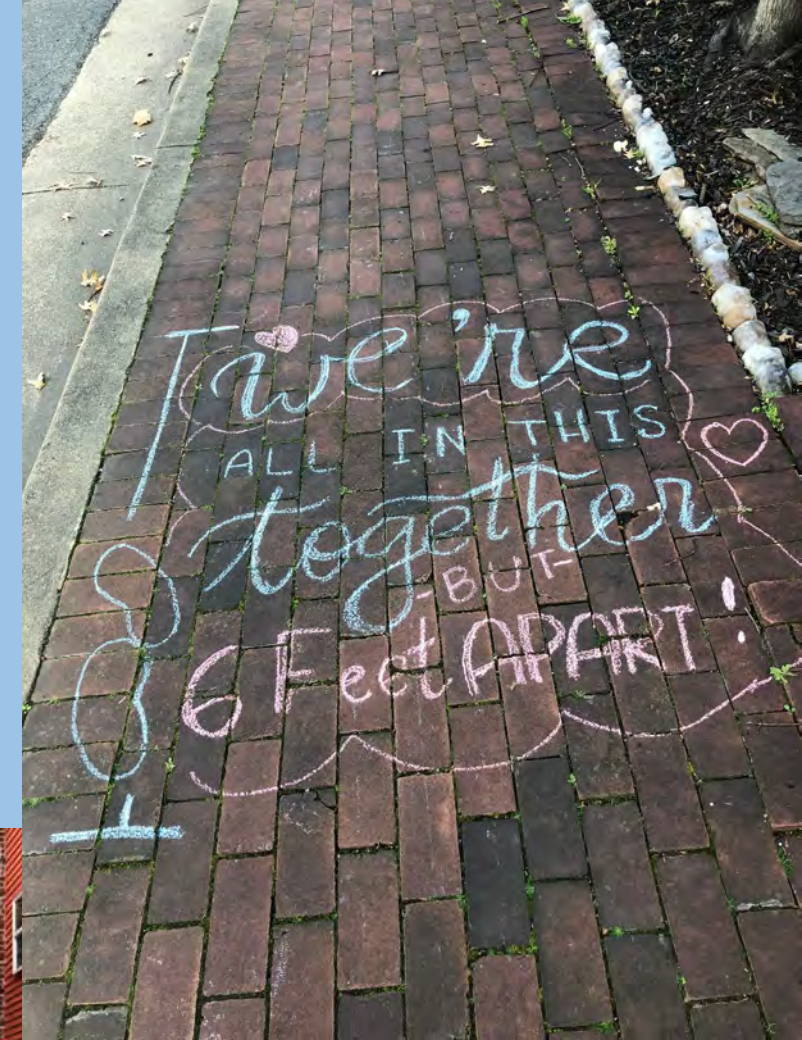 we're
ALL IN THIS
together
-BUT-
6 Feet APART!